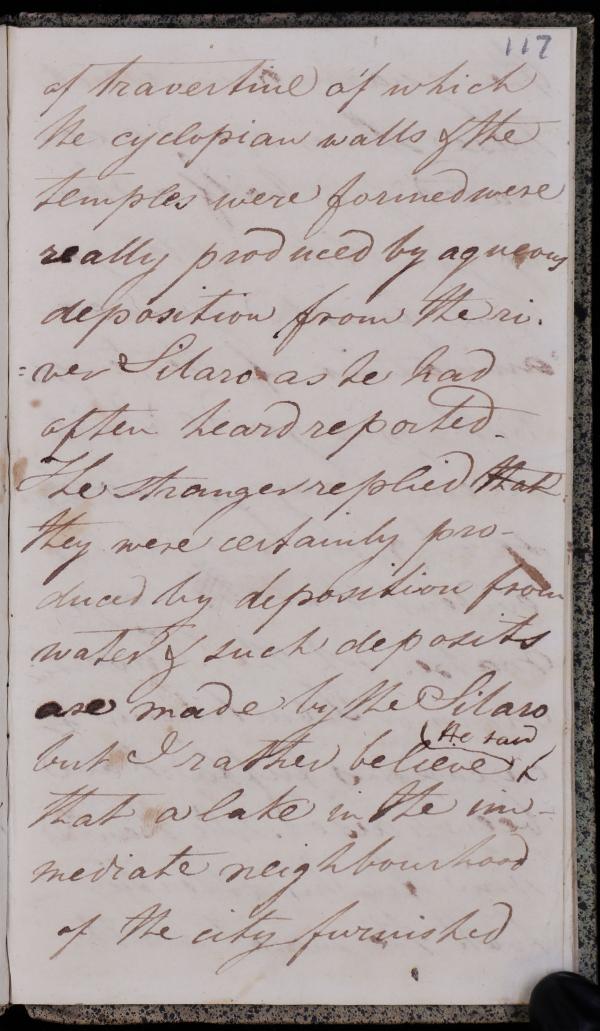 117
of travertine of which
the cyclopian walls & the
temples were formed were
really produced by aqueous
deposition from the ri.
=ver Silaro as he had
often heard reported.
The stranger replied that
they were certainly pro-
duced by deposition from
water & such deposits
are made by the Silaro
(He said
but I rather believe (
that a lake in the im-
mediate neighbourhood
of the city furnished